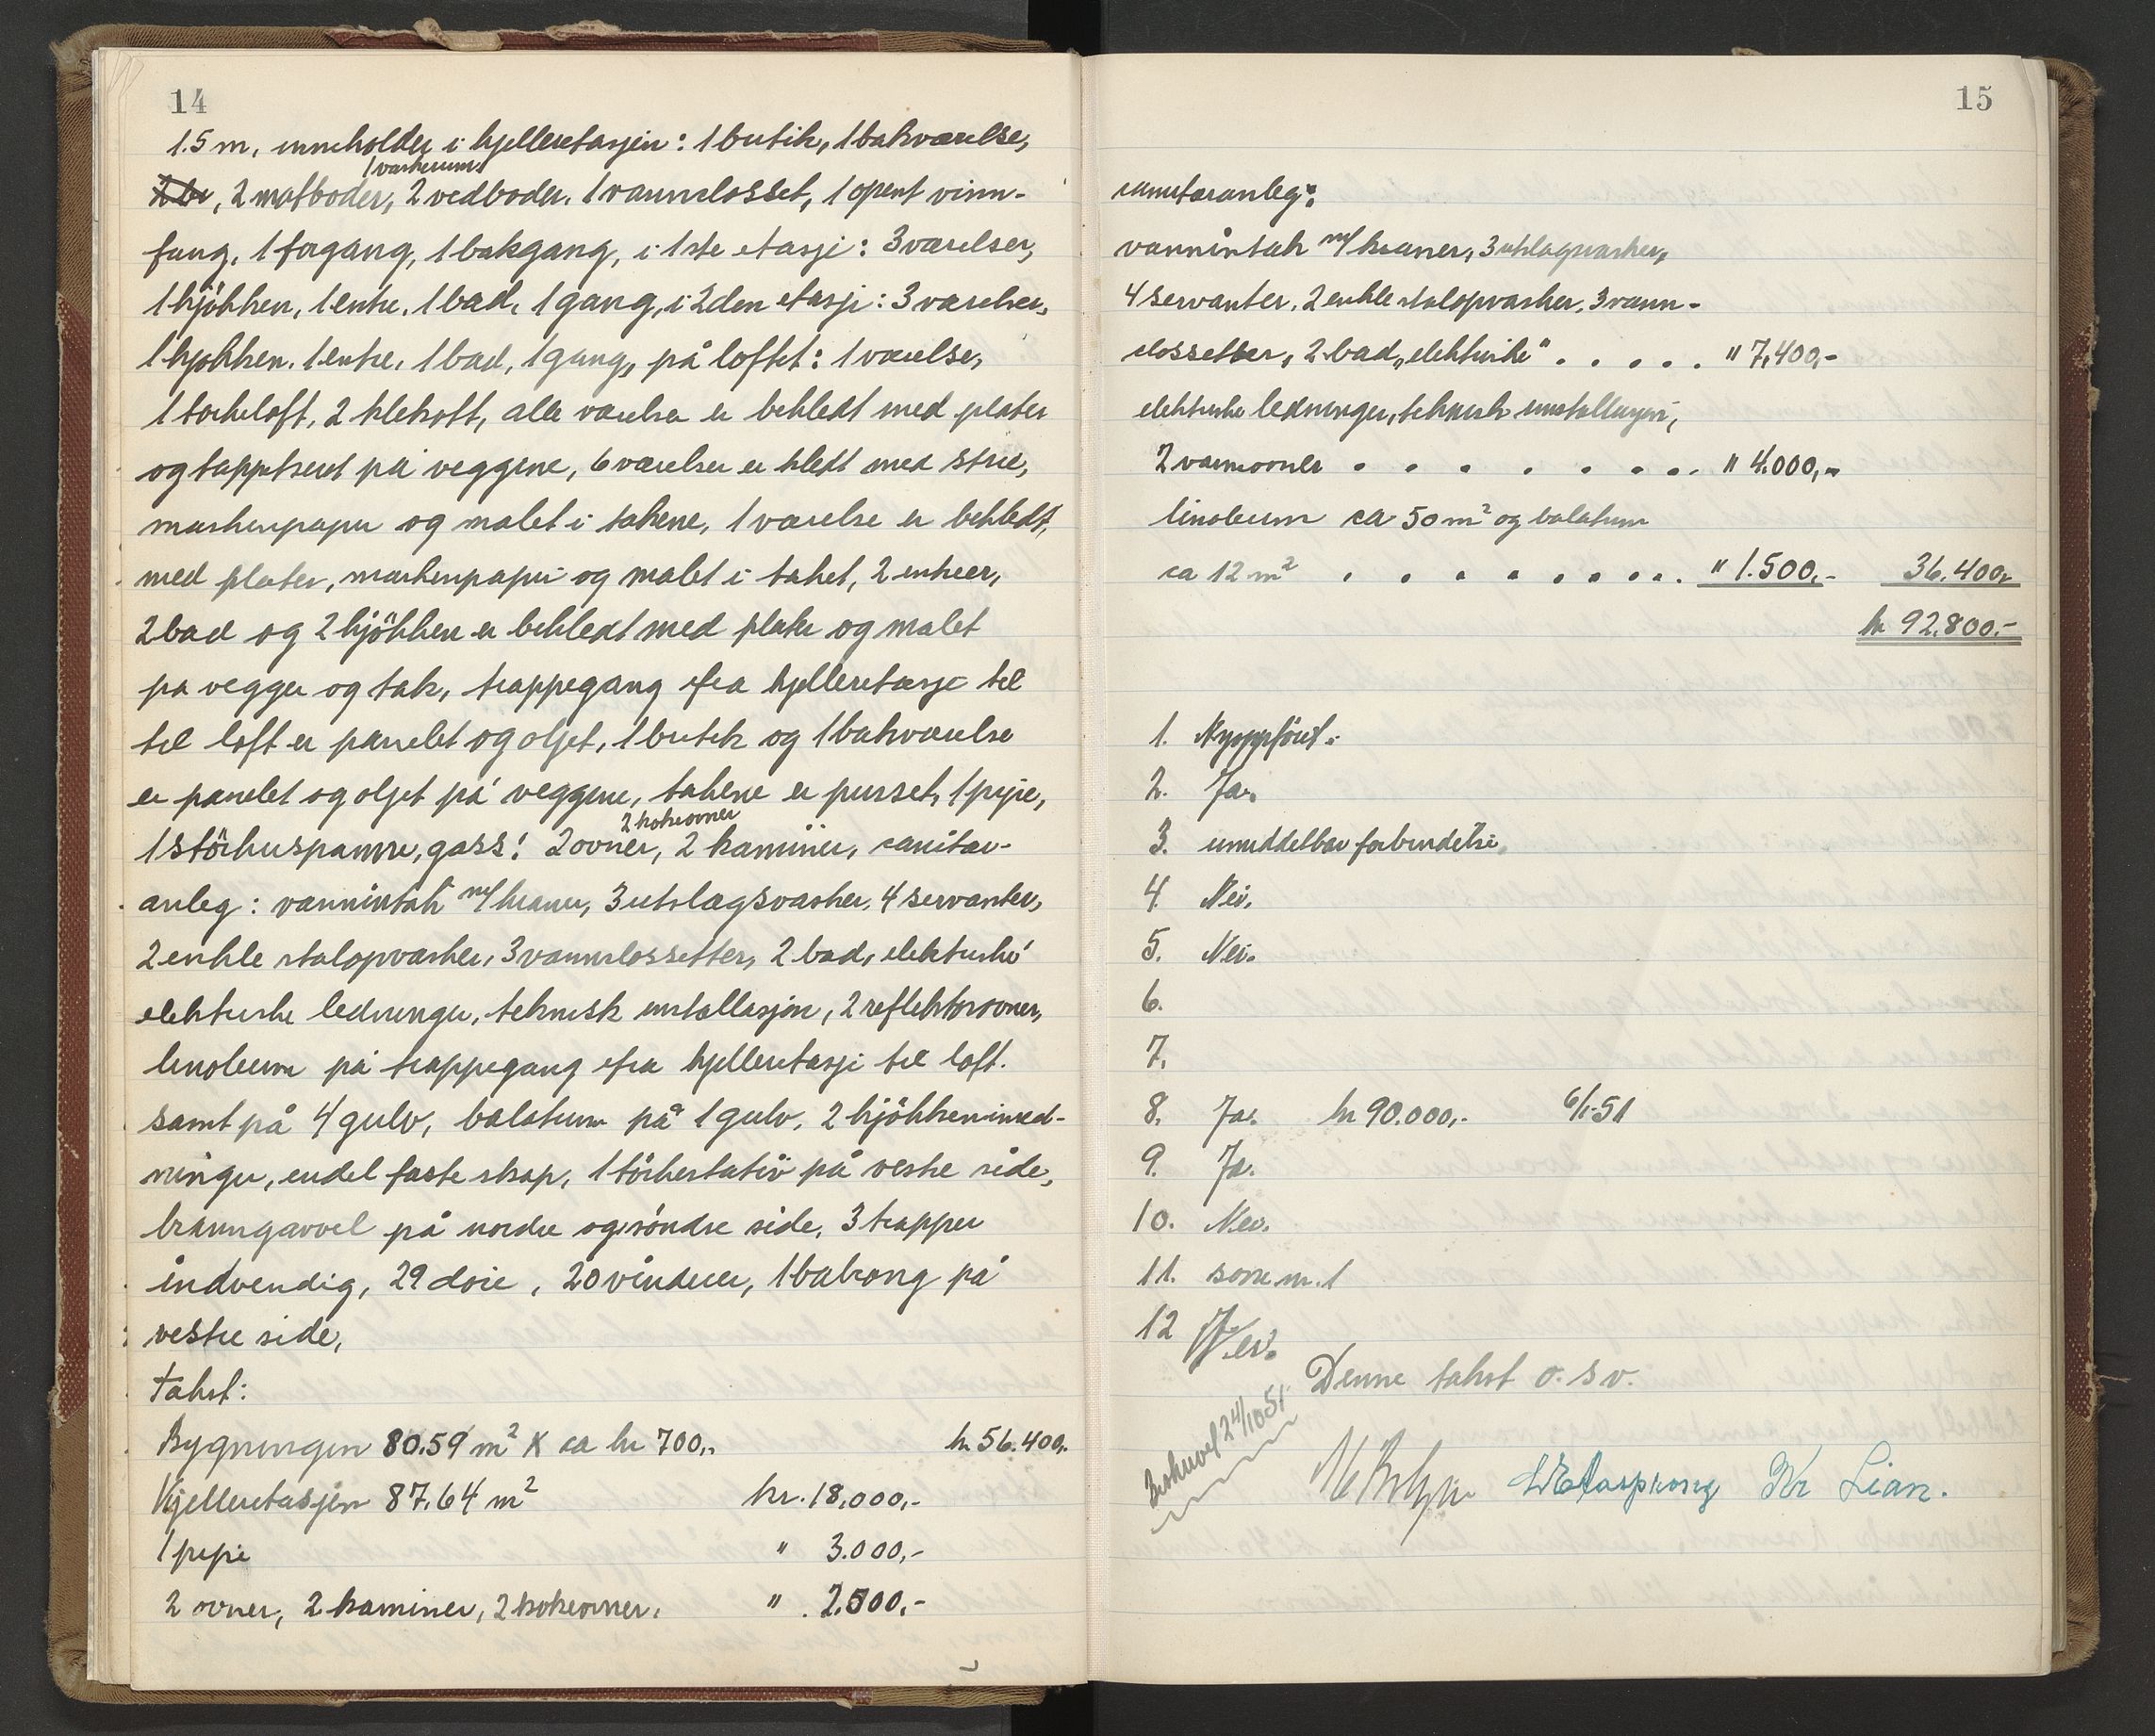 14
1.5 m, inneholder i kjelleretasjen: 1 butik, 1 bakværelse,
1 vaskerum
2 br, 2 matboder, 2 vedboder, 1 vannclosset, 1 åpent vinn-
fang, 1 forgang, 1 bakgang, i 1ste etasje: 3 værelser,
1 kjökken, 1 entre, 1 bad, 1 gang, i 2den etasje: 3 værelser,
1 kjökken, 1 entre, 1 bad, 1 gang, på loftet: 1 værelse,
1 törkeloft, 2 klekott, alle værelser er bekledt med plater
og tappetseret på veggene, 6 værelser er kledt med strie,
maskinpapir og malet i takene, 1 værelse er bekledt,
med plater, maskinpapir og malet i taket, 2 entreer,
2 bad og 2 kjökken er bekledt med plater og malet
på vegger og tak, trappegang ifra kjelleretasje til
til loft er panelet og oljet, 1 butik og 1 bakværelse
er panelet og oljet på veggene, takene er pusset, 1 pipe,
2 kokeovner
1 störhuspanne, gass! 2 ovner, 2 kaminer, sanitær-
anleg: vanninntak m/ kraner, 3 utslagsvasker, 4 servanter,
2 enkle stålopvasker, 3 vannclossetter, 2 bad, elektriske
elektriske ledninger, teknisk installasjon, 2 reflektorovner,
linoleum på trappegang ifra kjelleretasje til loft.
samt på 4 gulv, balatum på 1 gulv, 2 kjökkeninnred-
ninger, endel faste skap, 1 törkestativ på vestre side,
branngavvel på nordre og söndre side, 3 trapper
indvendig, 29 döre, 20 vinduer, 1 balkong på
vestre side,
Takst:
Bygningen 80.59 m² x ca kr 700,- kr 56.400,-
Kjelleretasjen 87,64 m² kr. 18.000,-
1 pipe " 3.000,-
2 ovner, 2 kaminer, 2 kokeovner, " 2.500,-
15
sanitæranleg:
vanninntak m/ kraner, 3 utslagsvasker,
4 servanter, 2 enkle stålopvasker, 3 vann-
clossetter, 2 bad, „elektriske" . . . . . " 7,400,-
elektriske ledninger, teknisk installasjon,
2 varmeovner . . . . . . . . " 4.000,-
linoleum ca 50 m² og balatum
ca 12 m² . . . . . . . . . " 1.500,- 36.400,-
kr 92.800.-
1. Nyoppført.
2. Ja.
3. umiddelbar forbindelse
4. Nei.
5. Nei.
6.
7.
8. Ja. kr 90.000,- 6/1-51
9. Ja.
10. Nei.
11. som nr. 1
12 Nei.
Denne takst o. s v.
Beskrevet 24/10 51
Kr Lian.